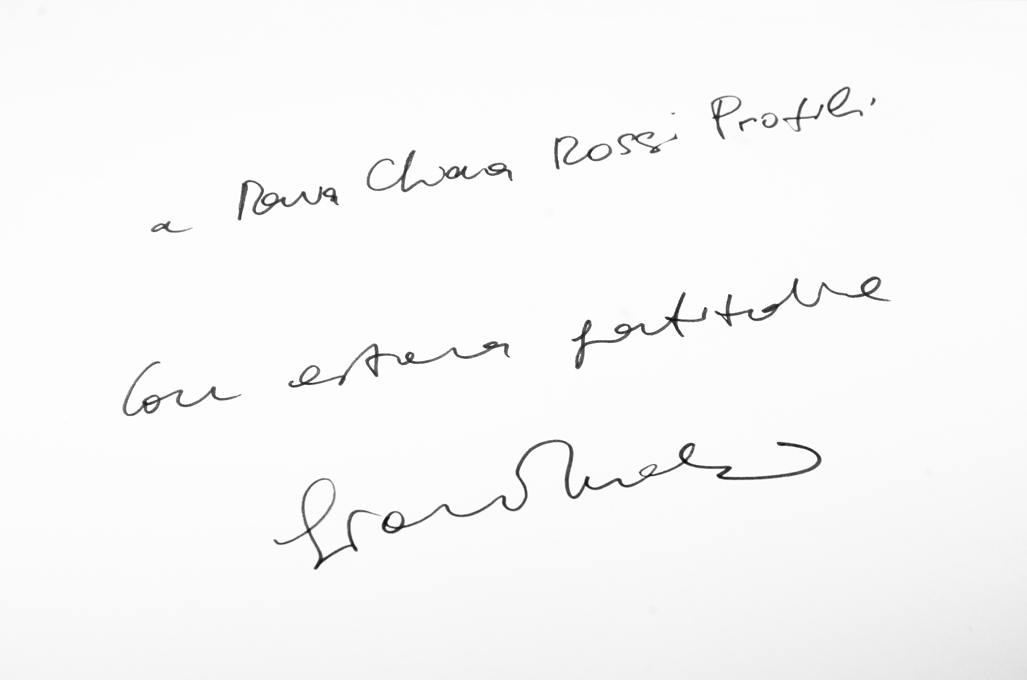 a Maria Chiara Rossi Profili
Con estrema gratitudine